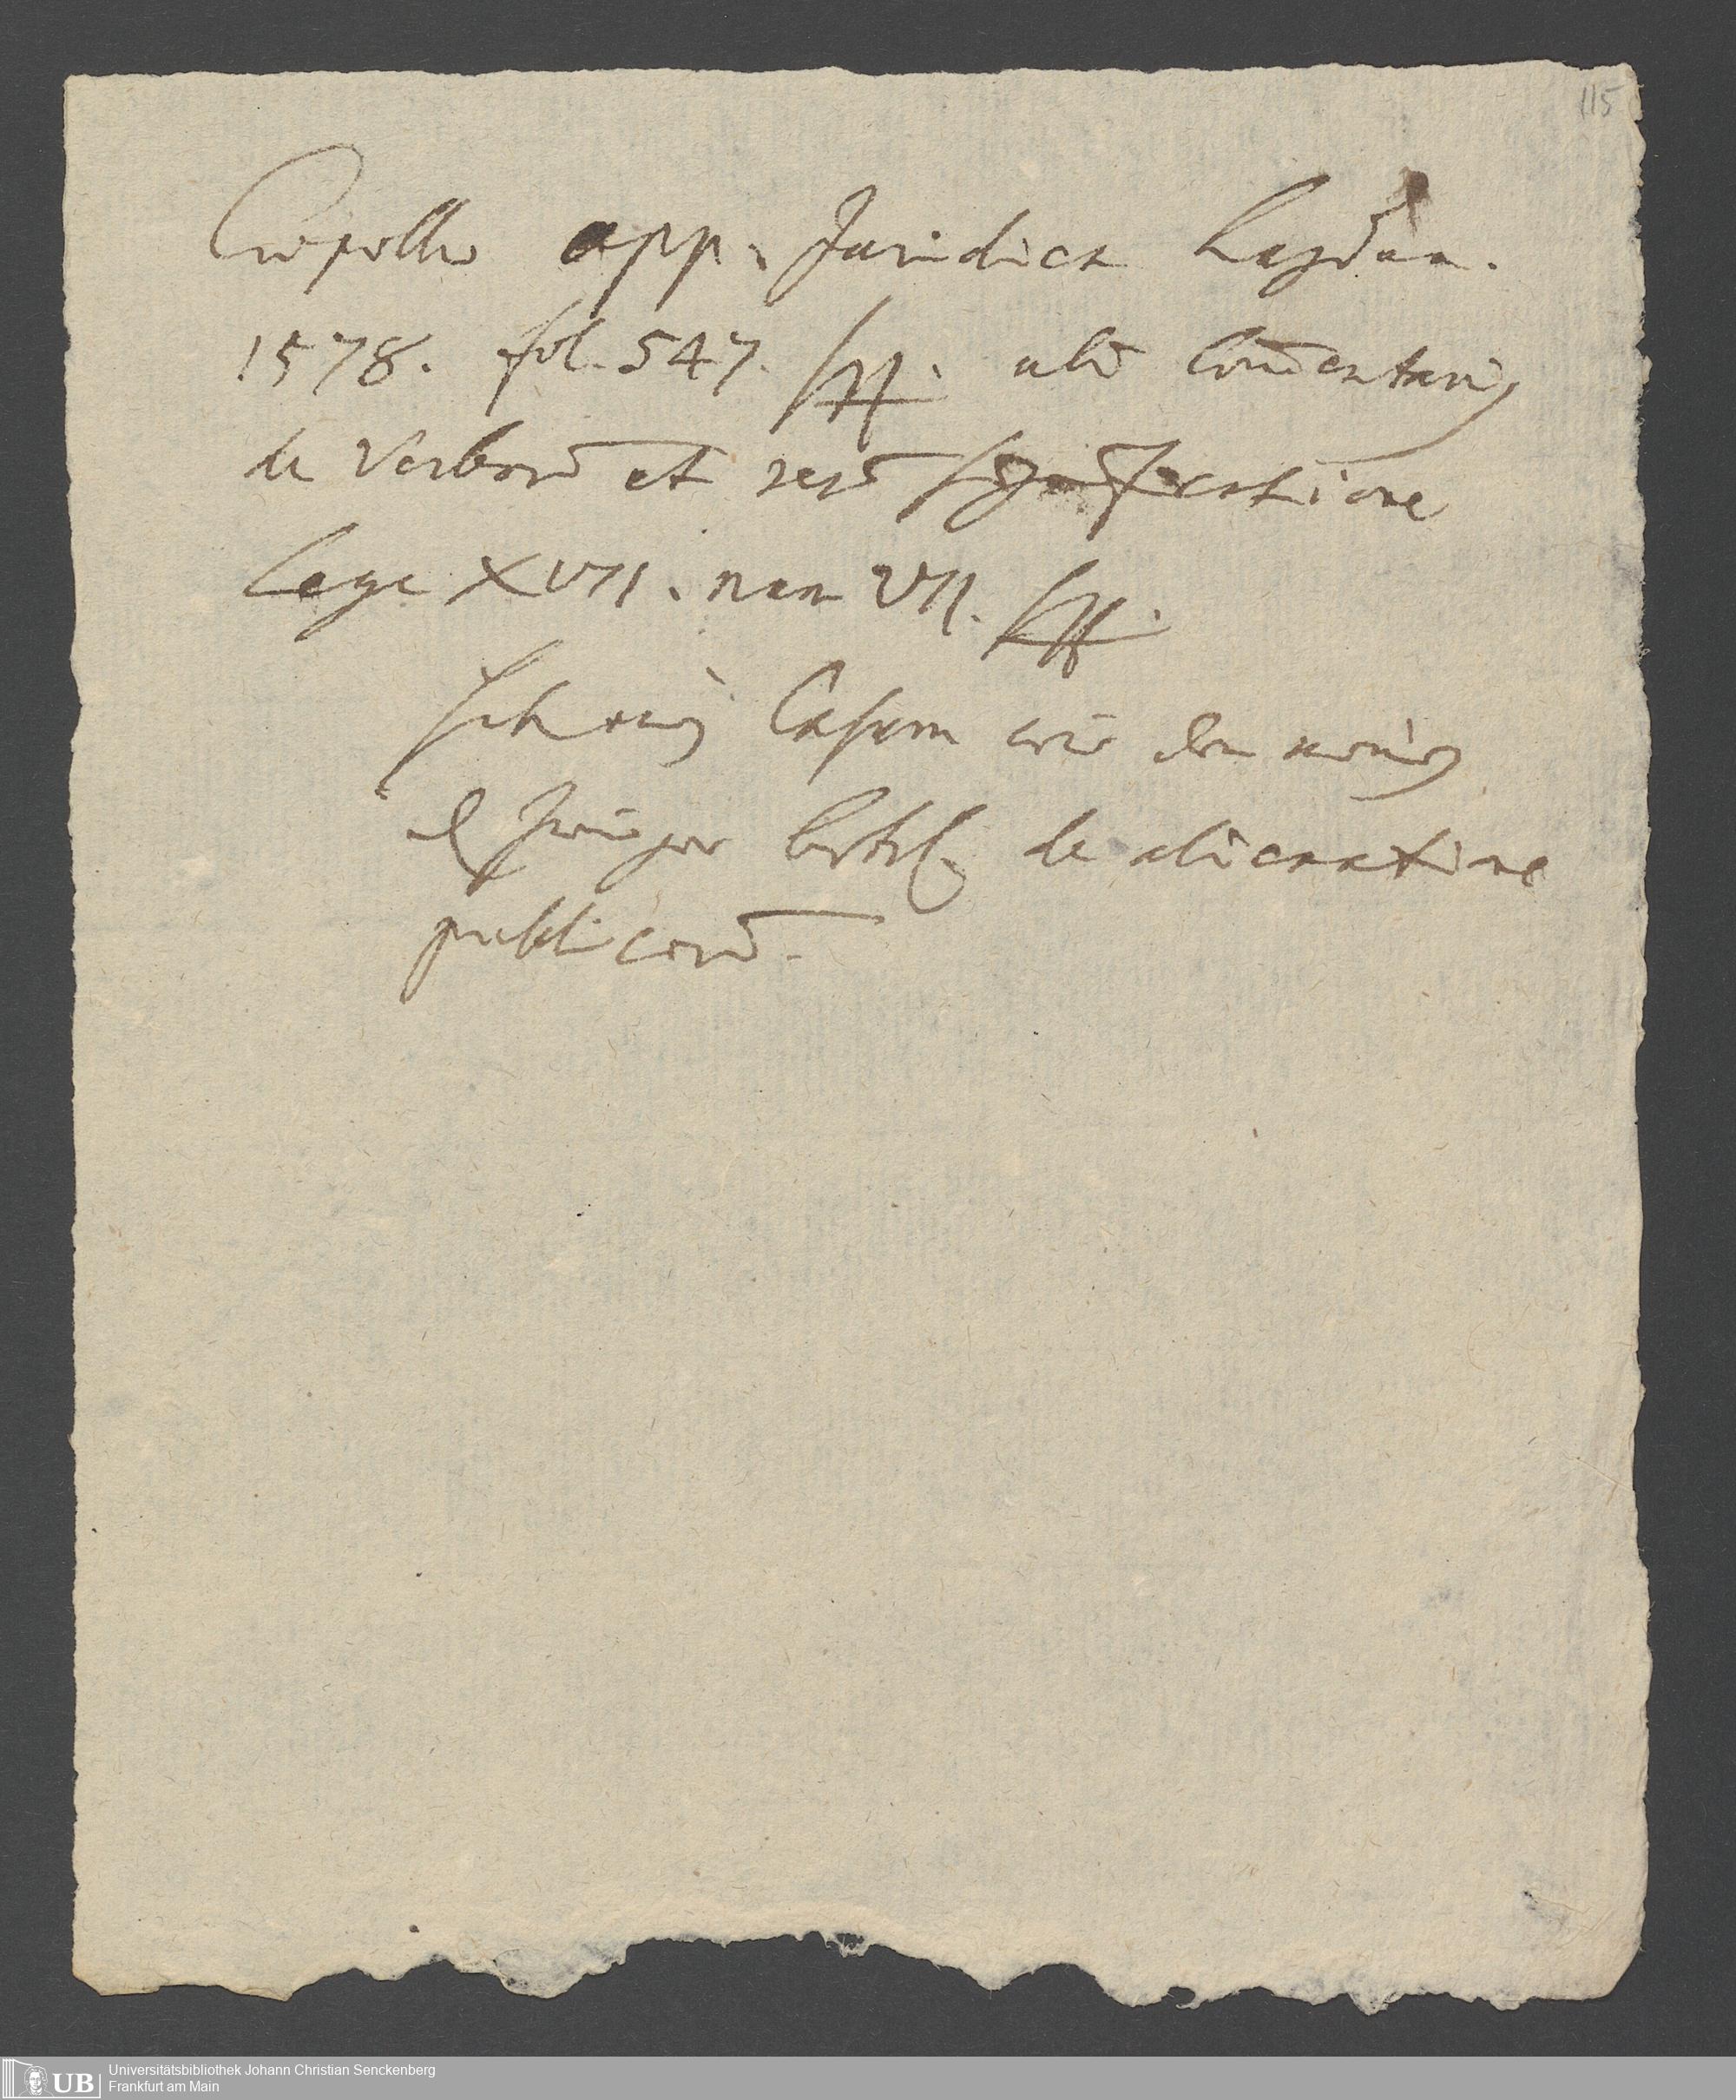 115
Cepolla opp. Juridica Lugdun.
1578. fol. 547. sqq. ubi Com̄entariꝰ
de Verborū et rerū significatione
Lege XVII. num VII. sqq.
hat einen Casum wie den meinigen
de alienatione
publicorū.
UB Universitätsbibliothek Johann Christian Senckenberg
Frankfurt am Main